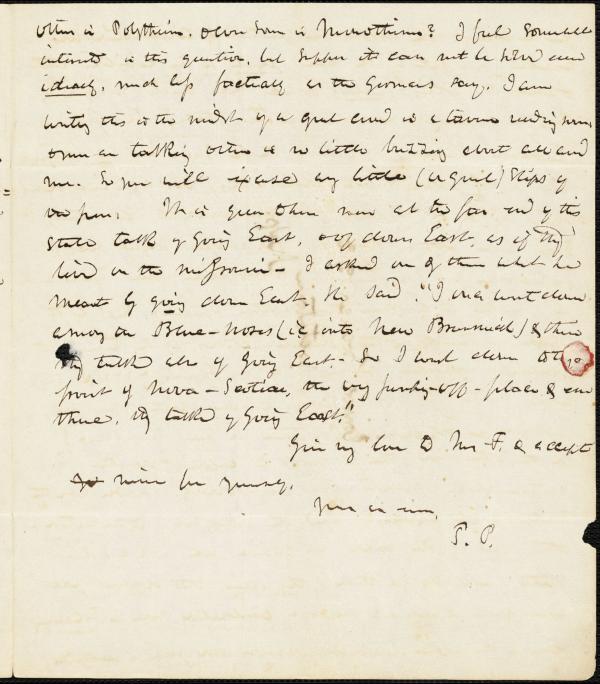 others in Polytheism, or even some in Monotheism? I feel somewhat
interest in this question, but suppose it can not be solved even
ideally, much less factually as the Germans say. I am
writing this in the midst of a great crowd in a tavern reading room
men are talking & there is no little buzzing about all around
me. So you will excuse any little (or great) slips of
the pen. It is queer there now at the far end of this
state talk of Going East, & of down East, as if they
lived on the Missouri — I asked one of them what he
meant by going down East. He said. "I once went down
among the Blue-Noses (ie into New Brunswick) & there
they talk also of Going East. — So I went down to
point of Nova-Scotia, the very jumping-off-place & even
there, they talk of Going East."
Give my love to Mrs. F. & accept
mine for yourself.
Yours as ever,
T. P.